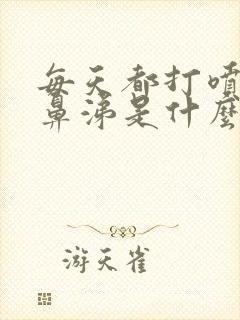 每天都打噴
鼻涕是什麼
游天雀